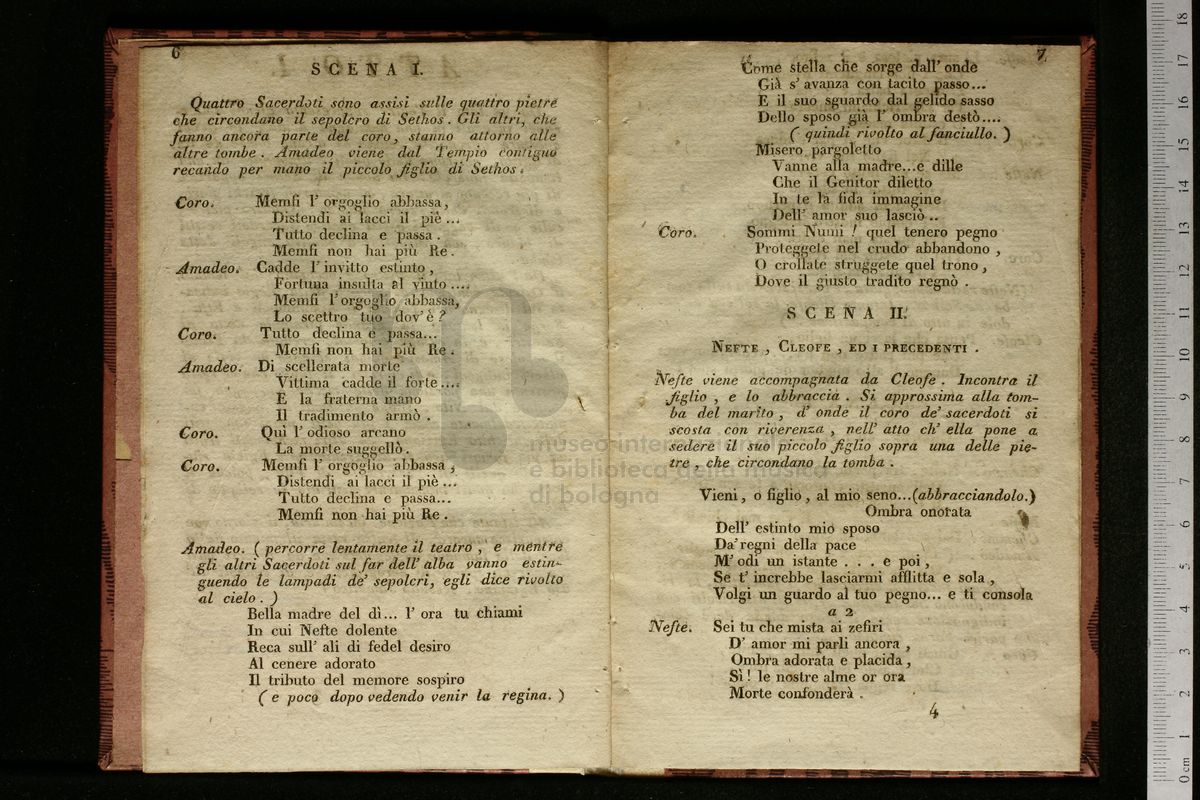 6
SCENA I.
Quattro Sacerdoti sono assisi sulle quattro pietre
che circondano il sepolcro di Sethos. Gli altri, che
fanno ancora parte del coro, stanno attorno alle
altre tombe. Amadeo viene dal Tempio contiguo
recando per mano il piccolo figlio di Sethos.
Coro. Memfi l' orgoglio abbassa,
Distendi ai lacci il piè ...
Tutto declina e passa.
Memfi non hai più Re.
Amadeo. Cadde l' invitto estinto,
Fortuna insulta al vinto ....
Memfi l' orgoglio abbassa,
Lo scettro tuo dov' è?
Coro. Tutto declina e passa...
Memfi non hai più Re.
Amadeo. Di scellerata morte
Vittima cadde il forte....
E la fraterna mano
Il tradimento armò.
Coro. Quì l' odioso arcano
La morte suggellò.
Coro. Memfi l' orgoglio abbassa,
Distendi ai lacci il piè ...
Tutto declina e passa...
Memfi non hai più Re.
Amadeo. ( percorre lentamente il teatro, e mentre
gli altri Sacerdoti sul far dell' alba vanno estin-
guendo le lampadi de' sepolcri, egli dice rivolto
al cielo. )
Bella madre del dì... l' ora tu chiami
In cui Nefte dolente
Reca sull' ali di fedel desiro
Al cenere adorato
Il tributo del memore sospiro
( e poco dopo vedendo venir la regina. )
7
Come stella che sorge dall' onde
Già s' avanza con tacito passo...
E il suo sguardo dal gelido sasso
Dello sposo già l' ombra destò....
( quindi rivolto al fanciullo. )
Misero pargoletto
Vanne alla madre...e dille
Che il Genitor diletto
In te la fida immagine
Dell' amor suo lasciò ..
Coro. Sommi Numi! quel tenero pegno
Proteggete nel crudo abbandono,
O crollate struggete quel trono,
Dove il giusto tradito regnò.
SCENA II.
NEFTE, CLEOFE, ED I PRECEDENTI.
Nefte viene accompagnata da Cleofe. Incontra il
figlio, e lo abbraccia. Si approssima alla tom-
ba del marito, d' onde il coro de' sacerdoti si
scosta con riverenza, nell' atto ch' ella pone a
sedere il suo piccolo figlio sopra una delle pie-
tre, che circondano la tomba.
Vieni, o figlio, al mio seno...(abbracciandolo.)
Ombra onorata
Dell' estinto mio sposo
Da' regni della pace
M' odi un istante . . . e poi,
Se t' increbbe lasciarmi afflitta e sola,
Volgi un guardo al tuo pegno... e ti consola
a 2
Nefte. Sei tu che mista ai zefiri
D' amor mi parli ancora,
Ombra adorata e placida,
Sì! le nostre alme or ora
Morte confonderà.
4
museo internazionale
e biblioteca della musica
di bologna
0 cm 1 2 3 4 5 6 7 8 9 10 11 12 13 14 15 16 17 18